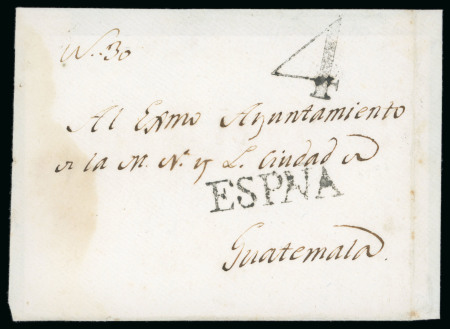 N.. 30
4
Al Exmo Ayuntamiento
de la M. N. y L. Ciudad de
ESPNA
Guatemala.